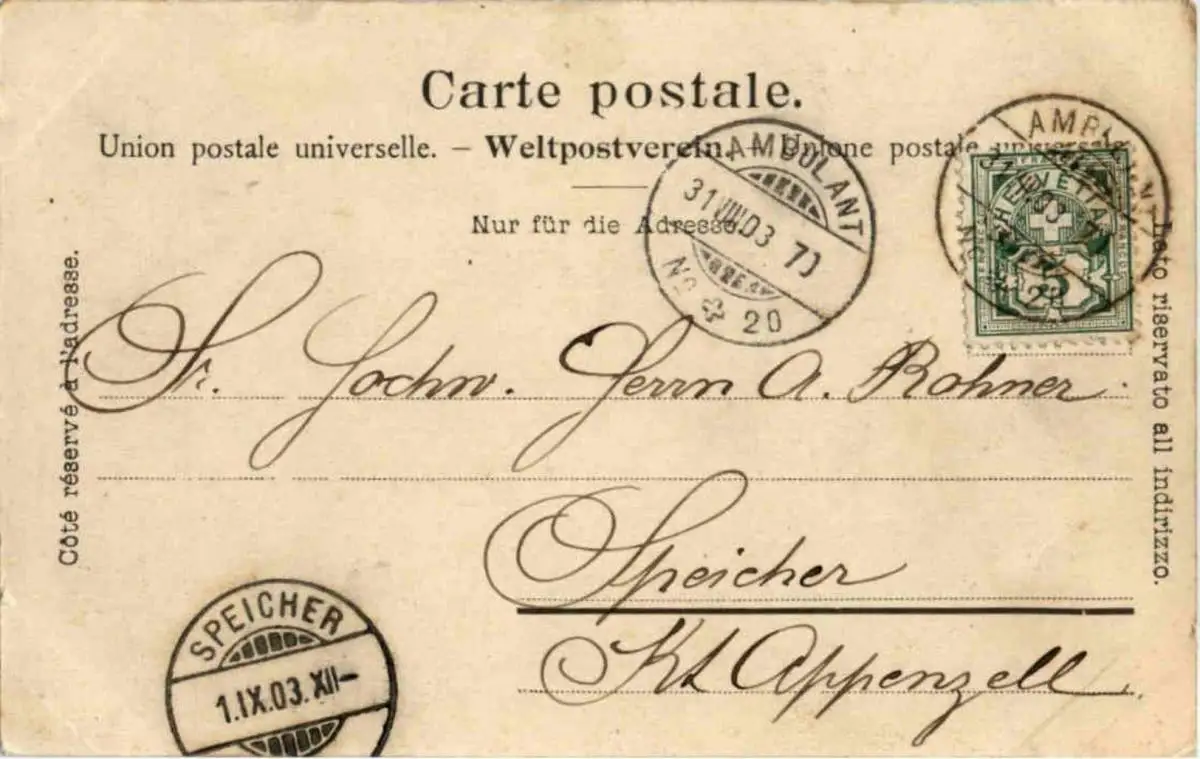 Carte postale.
Union postale universelle. – Weltpostverein. – Unione postale universale
Nur für die Adresse.
Côté réservé à l'adresse.
Lato riservato all indirizzo.
AMBULANT
31.VIII.03 7
No 20
AMBULANT
31 VIII 03 7
No 20
HELVETIA
FRANCO
5
Sr. Hochw. Herrn A. Rohner.
Speicher
Kt Appenzell.
SPEICHER
1.IX.03.XII–